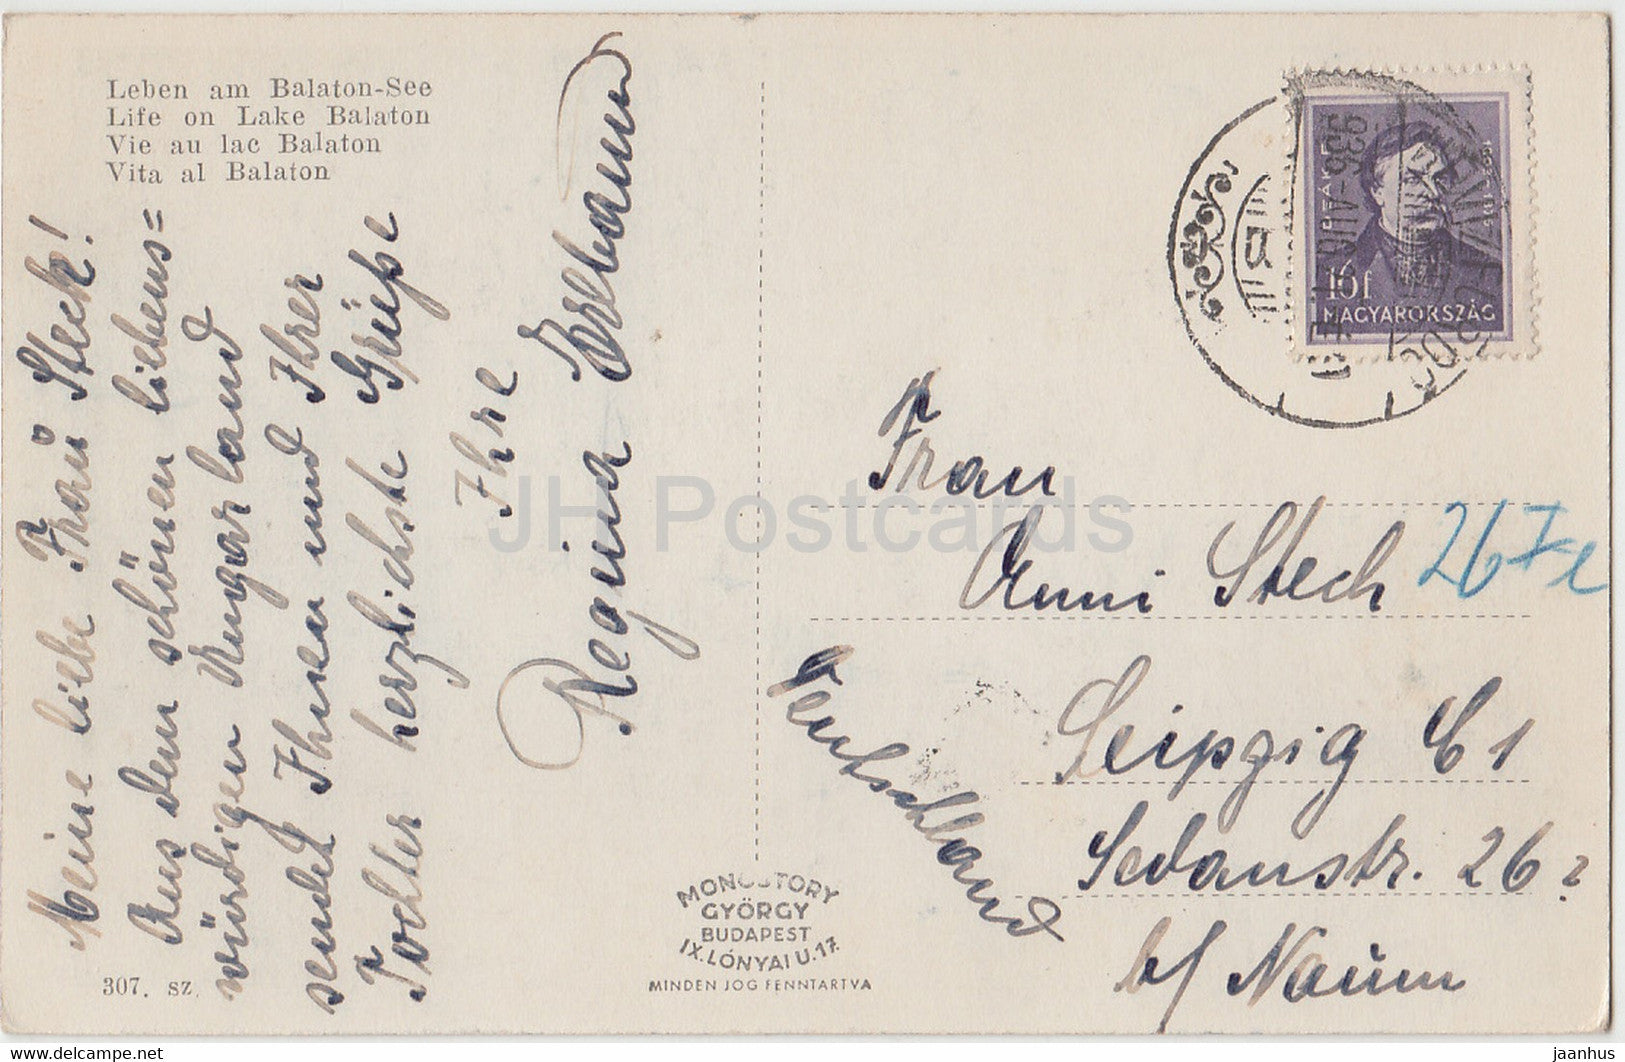 Leben am Balaton-See
Life on Lake Balaton
Vie au lac Balaton
Vita al Balaton
Meine liebe Frau Steck!
Aus dem schönen liebens=
würdigen Ungarland
sendet Ihnen und Ihrer
Tochter herzlichste Grüße
Ihre
Regina
307. sz.
MONOSTORY
GYÖRGY
BUDAPEST
IX. LÓNYAI U. 17.
MINDEN JOG FENNTARTVA
DEÁK F.
16f
MAGYARORSZÁG
Frau
Anni Stech
26
Leipzig C 1
Sedanstr. 26
b/ Naum
Deutschland
JH Postcards
www.delcampe.net
jaanhus